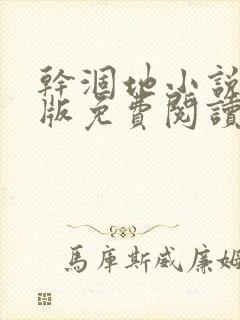 幹涸地小說
版免費閱讀
馬庫斯威廉姆